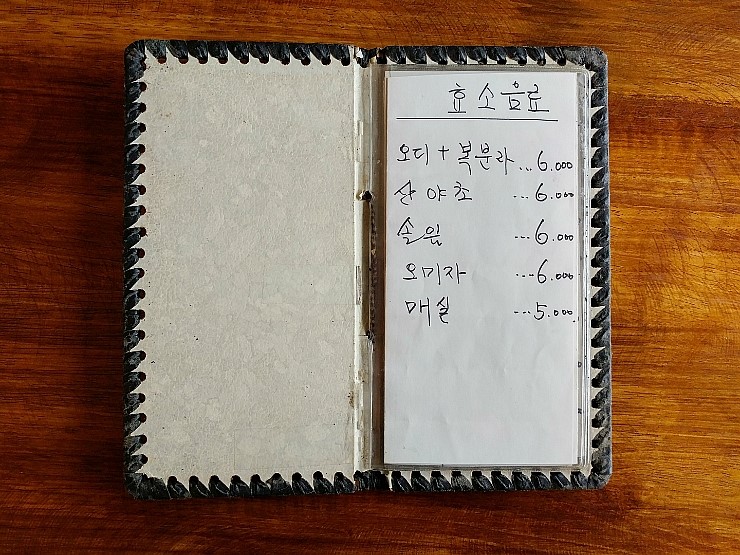 효소음료
오디+복분자...6.000
산야초 ...6.000
솔잎 ...6.000
오미자 ...6.000
매실 ...5.000